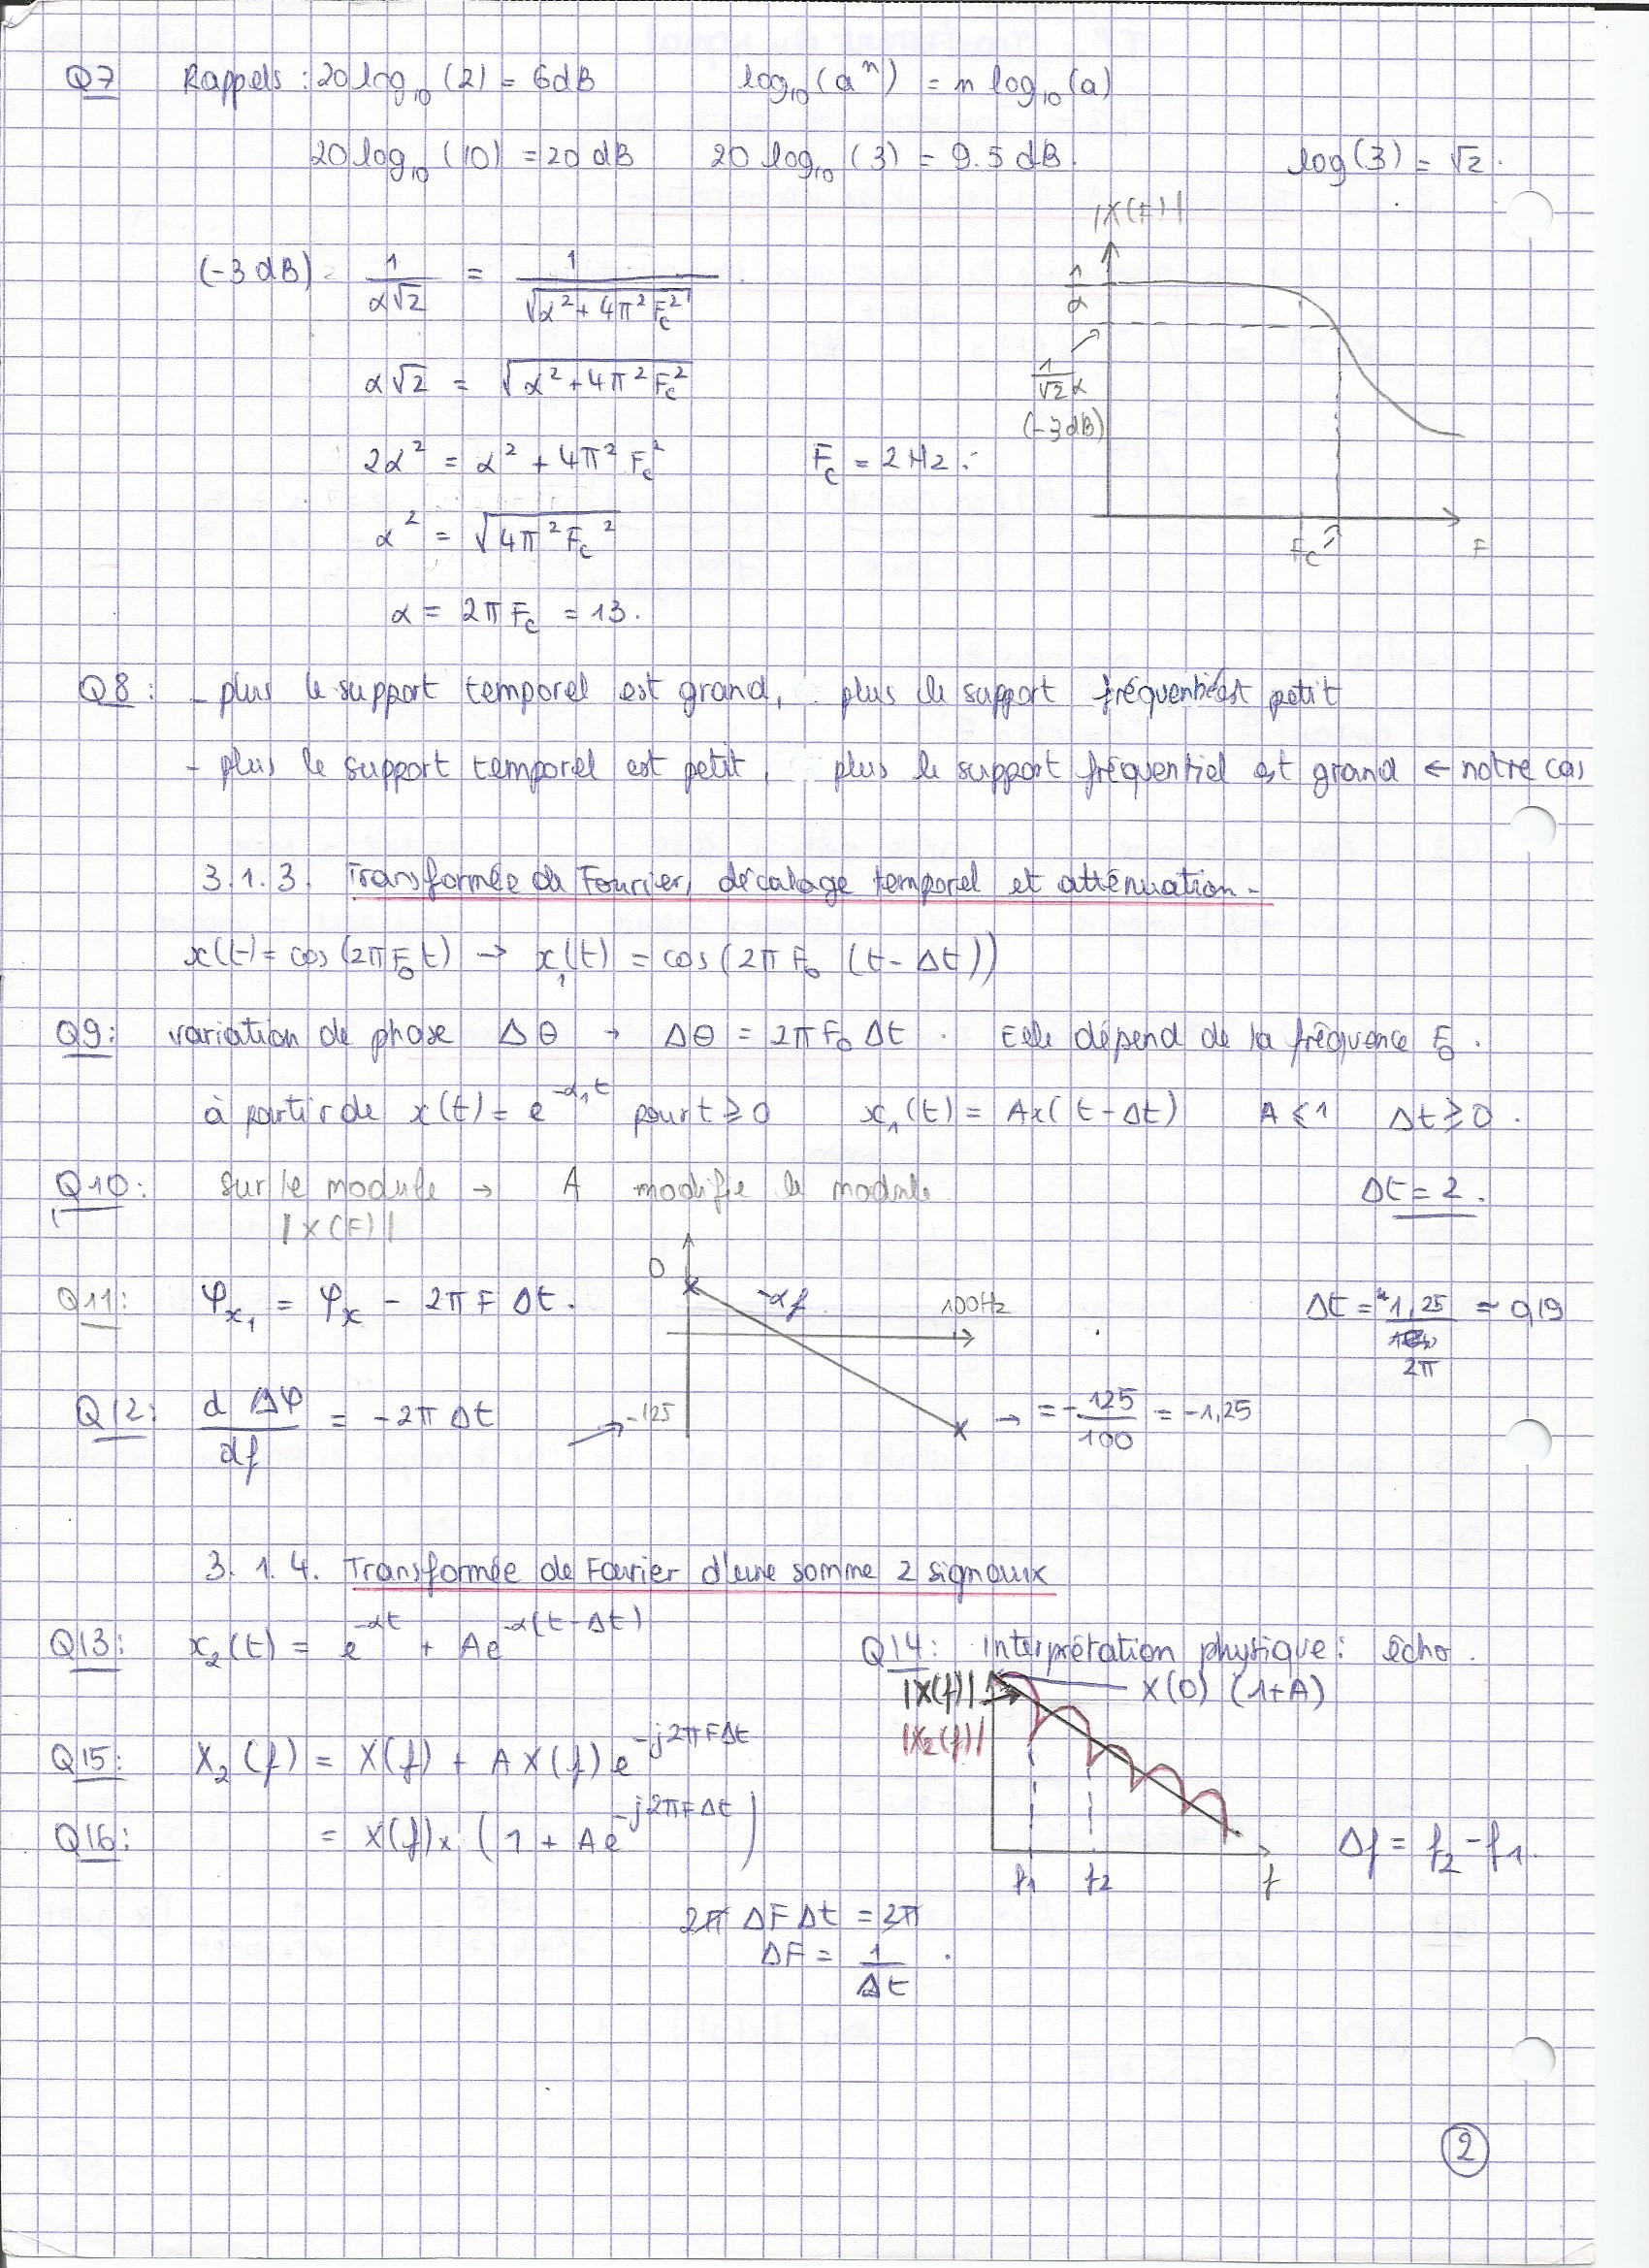 Q7 Rappels : 20 log₁₀ (2) = 6dB log₁₀ (aⁿ) = n log₁₀ (a)
20 log₁₀ (10) = 20 dB 20 log₁₀ (3) = 9.5 dB. log(3) = √2.
|X(F)|
(-3dB) = 1/(α√2) = 1/√(α² + 4π² F_c²)
1/α
α√2 = √(α² + 4π² F_c²)
1/(√2 α)
(-3dB)
2α² = α² + 4π² F_c² F_c = 2Hz.
α² = √(4π² F_c²)
F_c F
α = 2π F_c = 13.
Q8 : - plus le support temporel est grand, plus le support fréquentiel est petit
- plus le support temporel est petit, plus le support fréquentiel est grand ← notre cas
3.1.3. Transformée de Fourier, décalage temporel et atténuation -
x(t) = cos (2π F₀ t) → x₁(t) = cos (2π F₀ (t - Δt))
Q9 : variation de phase Δθ → Δθ = 2π F₀ Δt . Elle dépend de la fréquence F₀ .
à partir de x(t) = e^(-α₁t) pour t ≥ 0 x₁(t) = Ax(t - Δt) A ≤ 1 Δt ≥ 0 .
Q10 : sur le module → A modifie le module. Δt = 2 .
|X(F)|
Q11 : φ_x₁ = φ_x - 2π F Δt . 0 -αf 100Hz Δt = 1,25/2π = 0,19
Q12 : d Δφ/df = -2π Δt → -125 → = -125/100 = -1,25
3.1.4. Transformée de Fourier d'une somme 2 signaux
Q13 : x₂(t) = e^(-αt) + Ae^(-α(t-Δt)) Q14 : Interprétation physique : écho .
|X(f)| X(0) (1+A)
|X₂(f)|
Q15 : X₂(f) = X(f) + A X(f) e^(-j2πFΔt)
Q16 : = X(f) × (1 + Ae^(-j2πFΔt)) Δf = f₂ - f₁.
f₁ f₂ f
2π ΔF Δt = 2π
ΔF = 1/Δt .
2